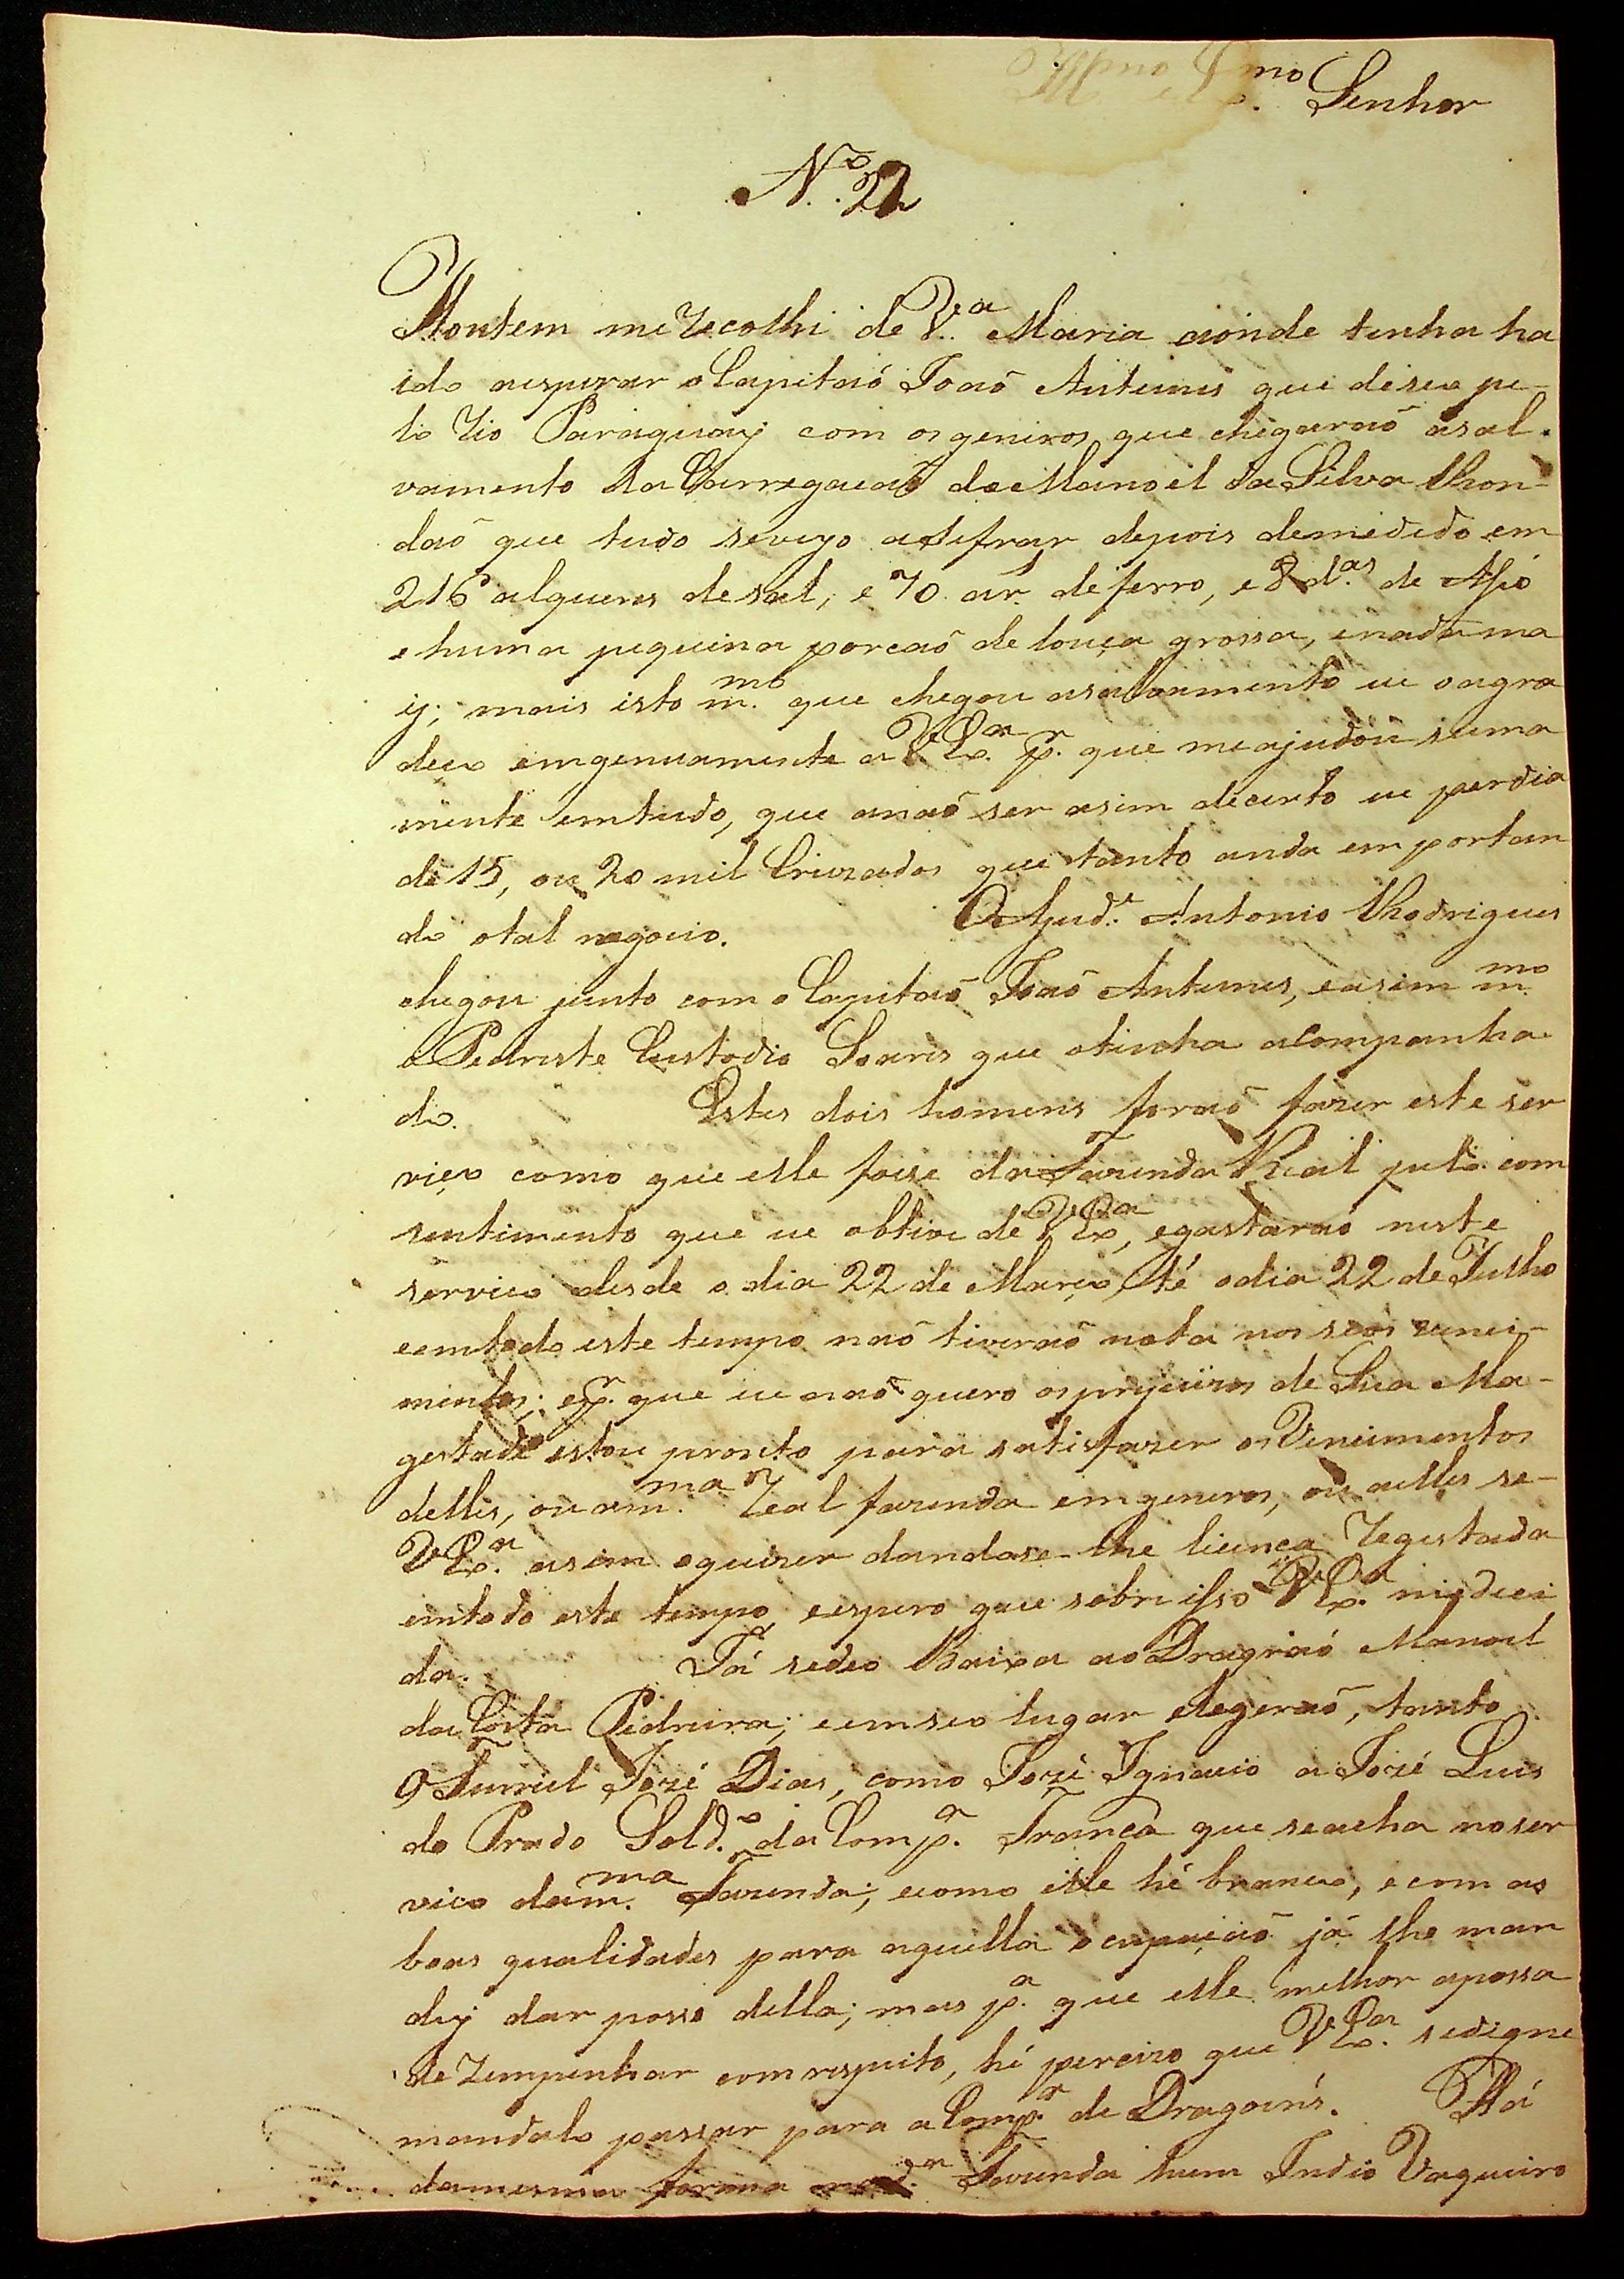 Illmo. Exmo. Senhor
N.º 22
Hontem me recolhi de V.ª Maria aonde tenha ha
ido aesperar o Capitaõ Joaõ Antunes que deseo pe-
lo rio Paraguay com os generos que chegaraõ asal-
vamento da Carregaçaõ de Manoel da Silva Rhon-
daõ que tudo seveyo adifrar depois demedido em
216 alqueres de sal, e 70 ar. de ferro, e 8 d.as de Asso
e huma pequena porcaõ de louça grossa, enada ma
ij; mais isto m.mo que chegou asalvamento eu o agra
deço emgenuamente a V. Ex.ª p.r que meajudou suma
mente emtudo, que anaõ ser asim decerto eu perdia
de 15, ou 20 mil Cruzados que tanto anda emportan
do otal negocio. O Ajud.e Antonio Rhodrigues
chegou junto com o Capitaõ Joaõ Antunes, easim m.mo
o Pedreste Custodio Soares que otinha acompanha
do. Estes dois homens foraõ fazer este ser
viço como que elle fose da Fazenda Real pelo com
sentimento que eu obtive de V. Ex.ª, egastaraõ neste
serviço desde o dia 22 de Março té odia 22 de Julho
eemtodo este tempo naõ tiveraõ nota nos seos venci-
mentos; ep.r que eu naõ quero osprejuizos de Sua Ma-
gestade estou pronto para satisfazer os Vencimentos
delles, ou am.ma Real fazenda em generos, ou aelles se-
V. Ex.ª asim oquizer dandose-lhe licença Regestada
emtodo este tempo, eespero que sobre isso V. Ex.ª medeci
da. Já sedeo Baixa ao Dragaõ Manoel
da Costa Pedreira; eemseo lugar elegeraõ, tanto
o Furriel José Dias, como José Ignacio a José Luis
do Prado Sold.º da Comp.ª Franca que seacha noser
viço dam.ma Fazenda; ecomo elle hé branco, ecom as
boas qualidades para aquella ocupaçaõ já lhe man
dey dar posse della; mas p.ª que elle melhor apossa
deZempenhar comrespeito, hé percizo que V. Ex.ª sedigne
mandalo passar para aComp.ª de Dragoens. Há
damesma forma na d.ª Fazenda hum Indio Vaqueiro